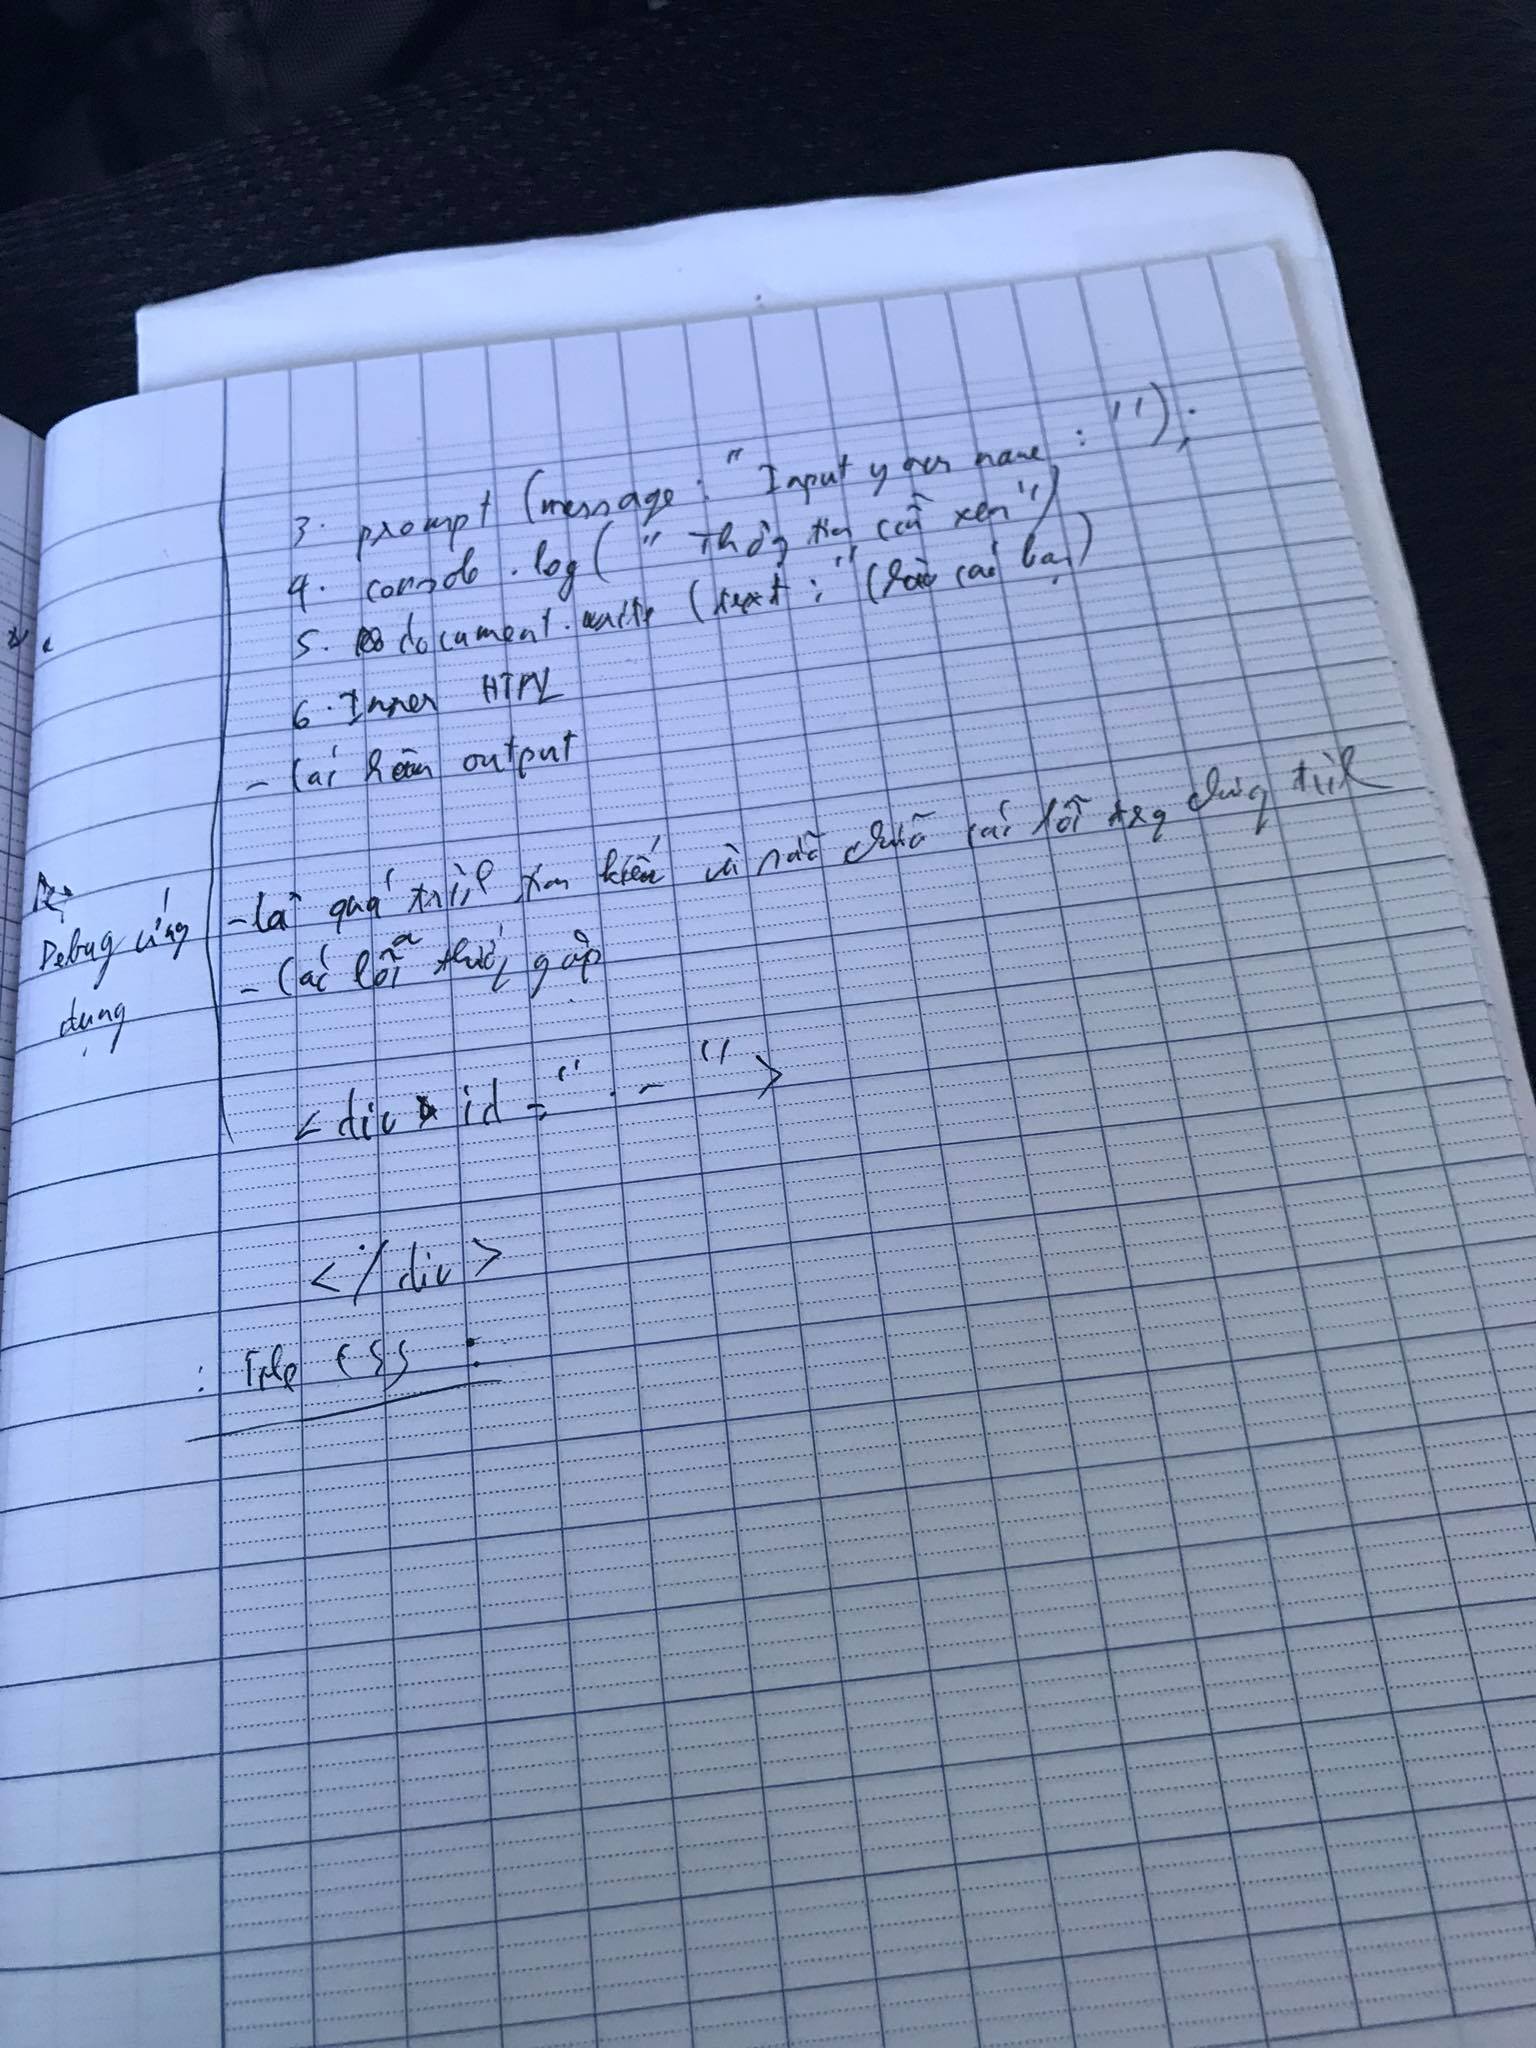 3. prompt (message: "Input your name: ");
4. console.log("Thông tin cần xem")
5. document.write (text: "Chào các bạn)
6. Inner HTML
- Các hàm output
Debug ứng
dụng
- Là quá trình tìm kiếm và sửa chữa các lỗi trong chương trình
- Các lỗi thường gặp
<div id = " . - ">
</div>
: File CSS :